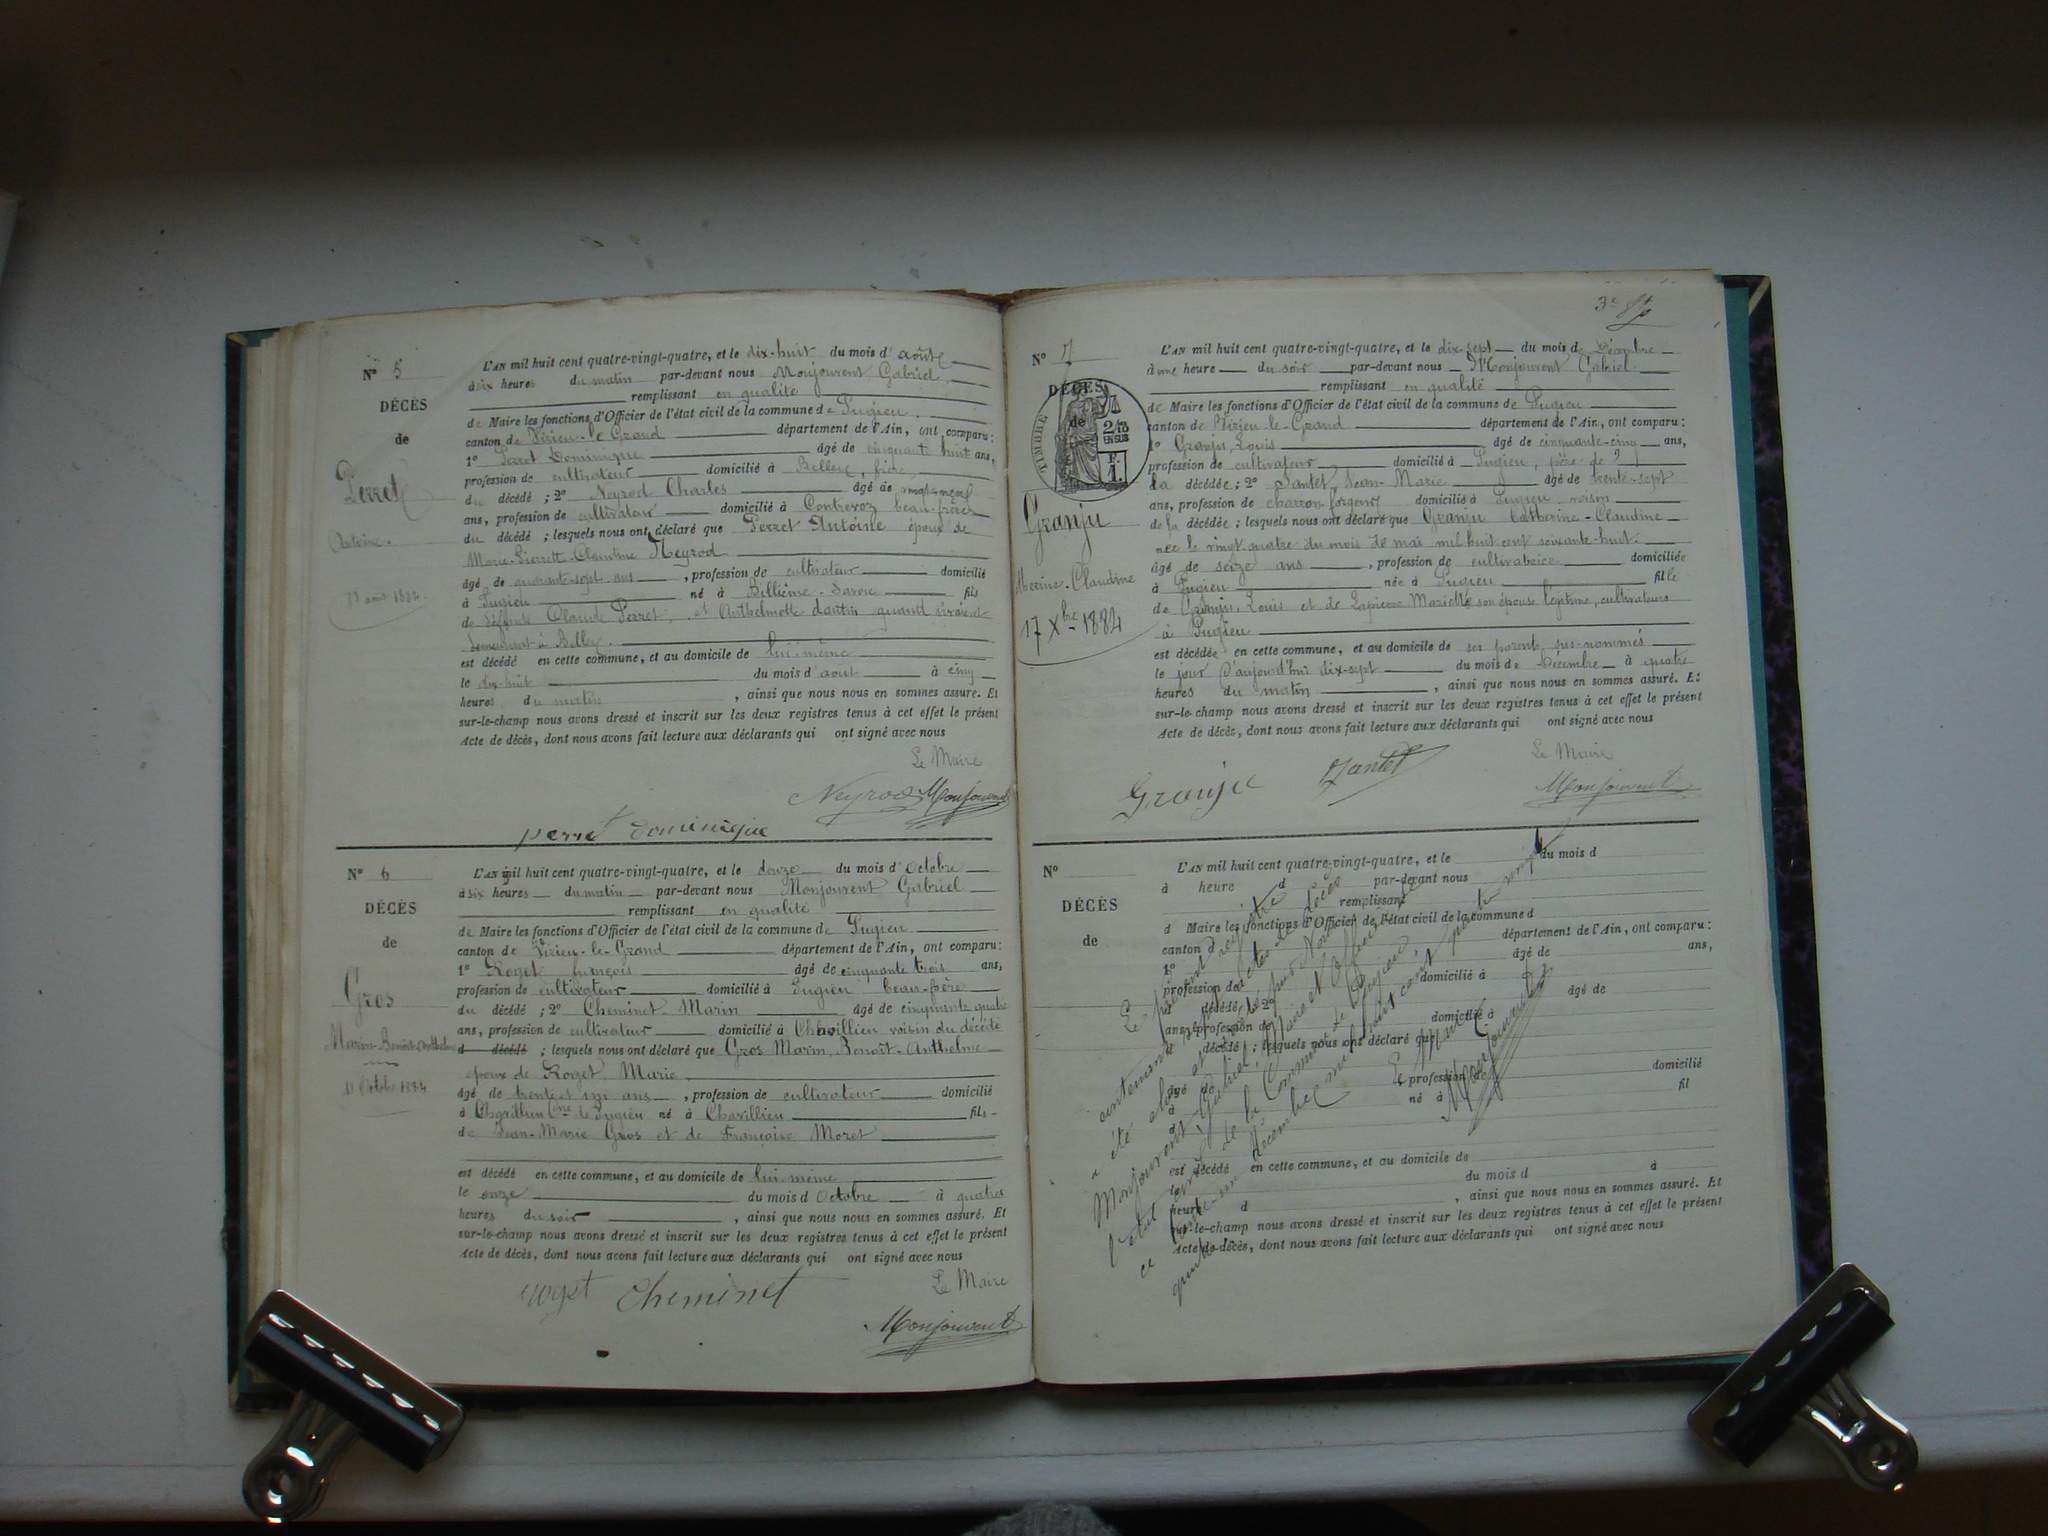 N° 5
DÉCÈS
de
Perret
Antoine.
18 août 1884.
L'AN mil huit cent quatre-vingt-quatre, et le dix-huit du mois d' août
à six heures du matin par-devant nous Monjouvent Gabriel,
remplissant en qualité
de Maire les fonctions d'Officier de l'état civil de la commune de Pugieu.
canton de Virieu-le-Grand département de l'Ain, ont comparu:
1° Perret Dominique âgé de cinquante huit ans,
profession de cultivateur domicilié à Belley, frère
du décédé ; 2° Neyrod Charles âgé de vingt-neuf
ans, profession de cultivateur domicilié à Contrevoz beau-frère
du décédé ; lesquels nous ont déclaré que Perret Antoine époux de
Marie-Pierrette-Claudine Neyrod
âgé de quarante-sept ans, profession de cultivateur domicilié
à Pugieu né à Billième-Savoie fils
de défunts Claude Perret, et Anthelmette Dantin quand vivaient
demeurant à Belley.
est décédé en cette commune, et au domicile de lui-même
le dix-huit du mois d'août à cinq
heures du matin, ainsi que nous nous en sommes assuré. Et
sur-le-champ nous avons dressé et inscrit sur les deux registres tenus à cet effet le présent
Acte de décès, dont nous avons fait lecture aux déclarants qui ont signé avec nous
Le Maire
Neyrod Monjouvent
perret Dominique
N° 6
DÉCÈS
de
Gros
Marin-Benoît-Anthelme
11 Octobre 1884
L'AN mil huit cent quatre-vingt-quatre, et le douze du mois d' Octobre
à six heures du matin par-devant nous Monjouvent Gabriel
remplissant en qualité
de Maire les fonctions d'Officier de l'état civil de la commune de Pugieu
canton de Virieu-le-Grand département de l'Ain, ont comparu:
1° Roget françois âgé de cinquante trois ans,
profession de cultivateur domicilié à Pugieu beau-père
du décédé ; 2° Cheminet Marin âgé de cinquante quatre
ans, profession de cultivateur domicilié à Chavillieu voisin du décédé
d décédé ; lesquels nous ont déclaré que Gros Marin, Benoît-Anthelme
époux de Roget Marie
âgé de trente et un ans, profession de cultivateur domicilié
à Chavillieu Cne de Pugieu né à Chavillieu fils
de Jean-Marie Gros et de Françoise Moret
est décédé en cette commune, et au domicile de lui-même
le onze du mois d Octobre à quatre
heures du soir, ainsi que nous nous en sommes assuré. Et
sur-le-champ nous avons dressé et inscrit sur les deux registres tenus à cet effet le présent
Acte de décès, dont nous avons fait lecture aux déclarants qui ont signé avec nous
Le Maire
roget Cheminet
Monjouvent
3e
N° 7
DÉCÈS
de
TIMBRE
Granju
Catherine-Claudine
17 Xbre 1884
L'AN mil huit cent quatre-vingt-quatre, et le dix-sept du mois de Décembre
à une heure du soir par-devant nous Monjouvent Gabriel
remplissant en qualité
de Maire les fonctions d'Officier de l'état civil de la commune de Pugieu
canton de Virieu-le-Grand département de l'Ain, ont comparu:
1° Granju Louis âgé de cinquante-cinq ans,
profession de cultivateur domicilié à Pugieu, père de
la décédée ; 2° Jantet Jean-Marie âgé de trente-sept
ans, profession de charron forgeron domicilié à Pugieu voisin
de la décédée ; lesquels nous ont déclaré que Granju Catherine-Claudine
née le vingt-quatre du mois de mai mil huit cent soixante-huit.
âgé de seize ans, profession de cultivatrice domiciliée
à Pugieu née à Pugieu fille
de Granju Louis et de Lapierre Mariette son épouse légitime, cultivateurs
à Pugieu
est décédée en cette commune, et au domicile de ses parents sus-nommés
le jour d'aujourd'hui dix-sept du mois de Décembre à quatre
heures du matin, ainsi que nous nous en sommes assuré. Et
sur-le-champ nous avons dressé et inscrit sur les deux registres tenus à cet effet le présent
Acte de décès, dont nous avons fait lecture aux déclarants qui ont signé avec nous
Le Maire
Granju Jantet Monjouvent
N°
DÉCÈS
de
L'AN mil huit cent quatre-vingt-quatre, et le du mois d
à heure d par-devant nous
remplissant
d Maire les fonctions d'Officier de l'état civil de la commune d
canton d département de l'Ain, ont comparu:
1° âgé de ans,
profession de domicilié à
d décédé ; 2° âgé de
ans, profession de domicilié à
d décédé ; lesquels nous ont déclaré que
âgé de profession de domicilié
à né à fil
d
est décédé en cette commune, et au domicile de
le du mois d à
heure d, ainsi que nous nous en sommes assuré. Et
sur-le-champ nous avons dressé et inscrit sur les deux registres tenus à cet effet le présent
Acte de décès, dont nous avons fait lecture aux déclarants qui ont signé avec nous
Le présent registre
contenant actes de décès
a été clos et par Nous
Monjouvent Gabriel, Maire et Officier de
l'état civil de la Commune de Pugieu,
ce trente-un décembre mil huit cent quatre vingt
quatre.
Monjouvent